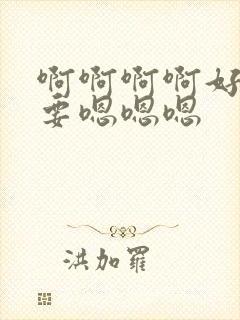 啊啊啊啊好
要嗯嗯嗯
洪加羅